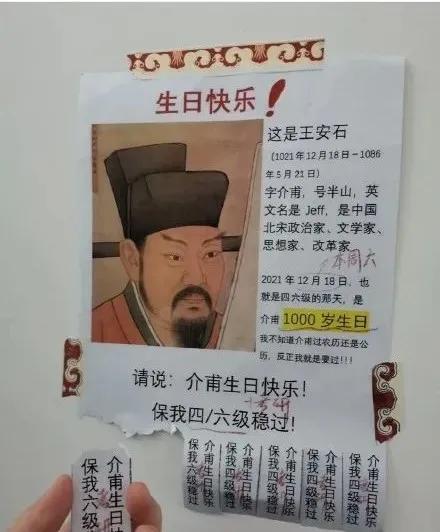 生日快乐！
这是王安石
（1021年12月18日－1086
年5月21日）
字介甫，号半山，英
文名是 Jeff，是中国
北宋政治家、文学家、
思想家、改革家
本周六
2021年12月18日，也
就是四六级的那天，是
介甫 1000 岁生日
我不知道介甫过农历还是公
历，反正我就是要过!!!
请说：介甫生日快乐！
保我四/六级稳过！
介甫生日快乐
保我六级稳过
介甫生日快乐
保我六级稳过
介甫生日快乐
保我四级稳过
介甫生日快乐
保我六级稳过
介甫生日快乐
保我四级稳过
介甫生日快乐
保我六级稳过